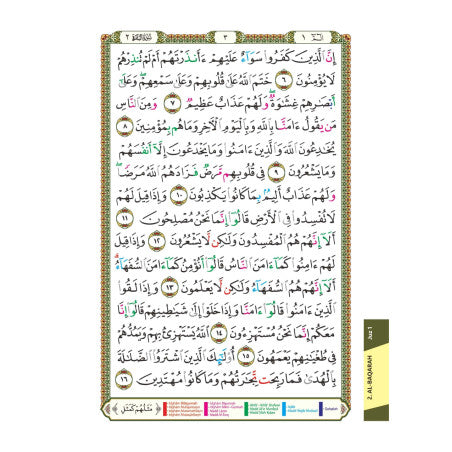 ٢ سُورَةُ البَقَرَة ٣ الـم ١
إِنَّ ٱلَّذِينَ كَفَرُوا۟ سَوَآءٌ عَلَيْهِمْ ءَأَنذَرْتَهُمْ أَمْ لَمْ تُنذِرْهُمْ
لَا يُؤْمِنُونَ ٦ خَتَمَ ٱللَّهُ عَلَىٰ قُلُوبِهِمْ وَعَلَىٰ سَمْعِهِمْ ۖ وَعَلَىٰٓ
أَبْصَٰرِهِمْ غِشَٰوَةٌ ۖ وَلَهُمْ عَذَابٌ عَظِيمٌ ٧ وَمِنَ ٱلنَّاسِ
مَن يَقُولُ ءَامَنَّا بِٱللَّهِ وَبِٱلْيَوْمِ ٱلْءَاخِرِ وَمَا هُم بِمُؤْمِنِينَ ٨
يُخَٰدِعُونَ ٱللَّهَ وَٱلَّذِينَ ءَامَنُوا۟ وَمَا يَخْدَعُونَ إِلَّآ أَنفُسَهُمْ
وَمَا يَشْعُرُونَ ٩ فِى قُلُوبِهِم مَّرَضٌ فَزَادَهُمُ ٱللَّهُ مَرَضًا ۖ
وَلَهُمْ عَذَابٌ أَلِيمٌۢ بِمَا كَانُوا۟ يَكْذِبُونَ ١٠ وَإِذَا قِيلَ لَهُمْ
لَا تُفْسِدُوا۟ فِى ٱلْأَرْضِ قَالُوٓا۟ إِنَّمَا نَحْنُ مُصْلِحُونَ ١١
أَلَآ إِنَّهُمْ هُمُ ٱلْمُفْسِدُونَ وَلَٰكِن لَّا يَشْعُرُونَ ١٢ وَإِذَا قِيلَ
لَهُمْ ءَامِنُوا۟ كَمَآ ءَامَنَ ٱلنَّاسُ قَالُوٓا۟ أَنُؤْمِنُ كَمَآ ءَامَنَ ٱلسُّفَهَآءُ ۗ
أَلَآ إِنَّهُمْ هُمُ ٱلسُّفَهَآءُ وَلَٰكِن لَّا يَعْلَمُونَ ١٣ وَإِذَا لَقُوا۟
ٱلَّذِينَ ءَامَنُوا۟ قَالُوٓا۟ ءَامَنَّا وَإِذَا خَلَوْا۟ إِلَىٰ شَيَٰطِينِهِمْ قَالُوٓا۟ إِنَّا
مَعَكُمْ إِنَّمَا نَحْنُ مُسْتَهْزِءُونَ ١٤ ٱللَّهُ يَسْتَهْزِئُ بِهِمْ وَيَمُدُّهُمْ
فِى طُغْيَٰنِهِمْ يَعْمَهُونَ ١٥ أُو۟لَٰٓئِكَ ٱلَّذِينَ ٱشْتَرَوُا۟ ٱلضَّلَٰلَةَ
بِٱلْهُدَىٰ فَمَا رَبِحَت تِّجَٰرَتُهُمْ وَمَا كَانُوا۟ مُهْتَدِينَ ١٦
مَثَلُهُمْ كَمَثَلِ
Juz 1
2. AL-BAQARAH